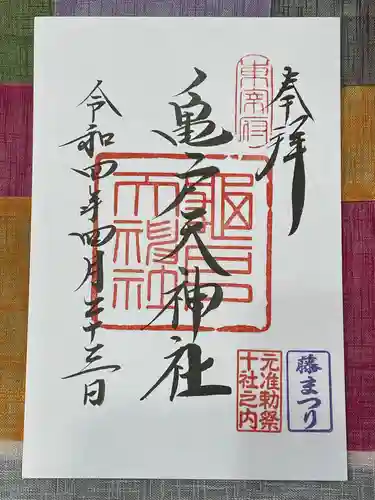 奉拝
東宰府
亀戸天神社
亀戸天神社
令和四年四月二十三日
元准勅祭
十社之内
藤まつり